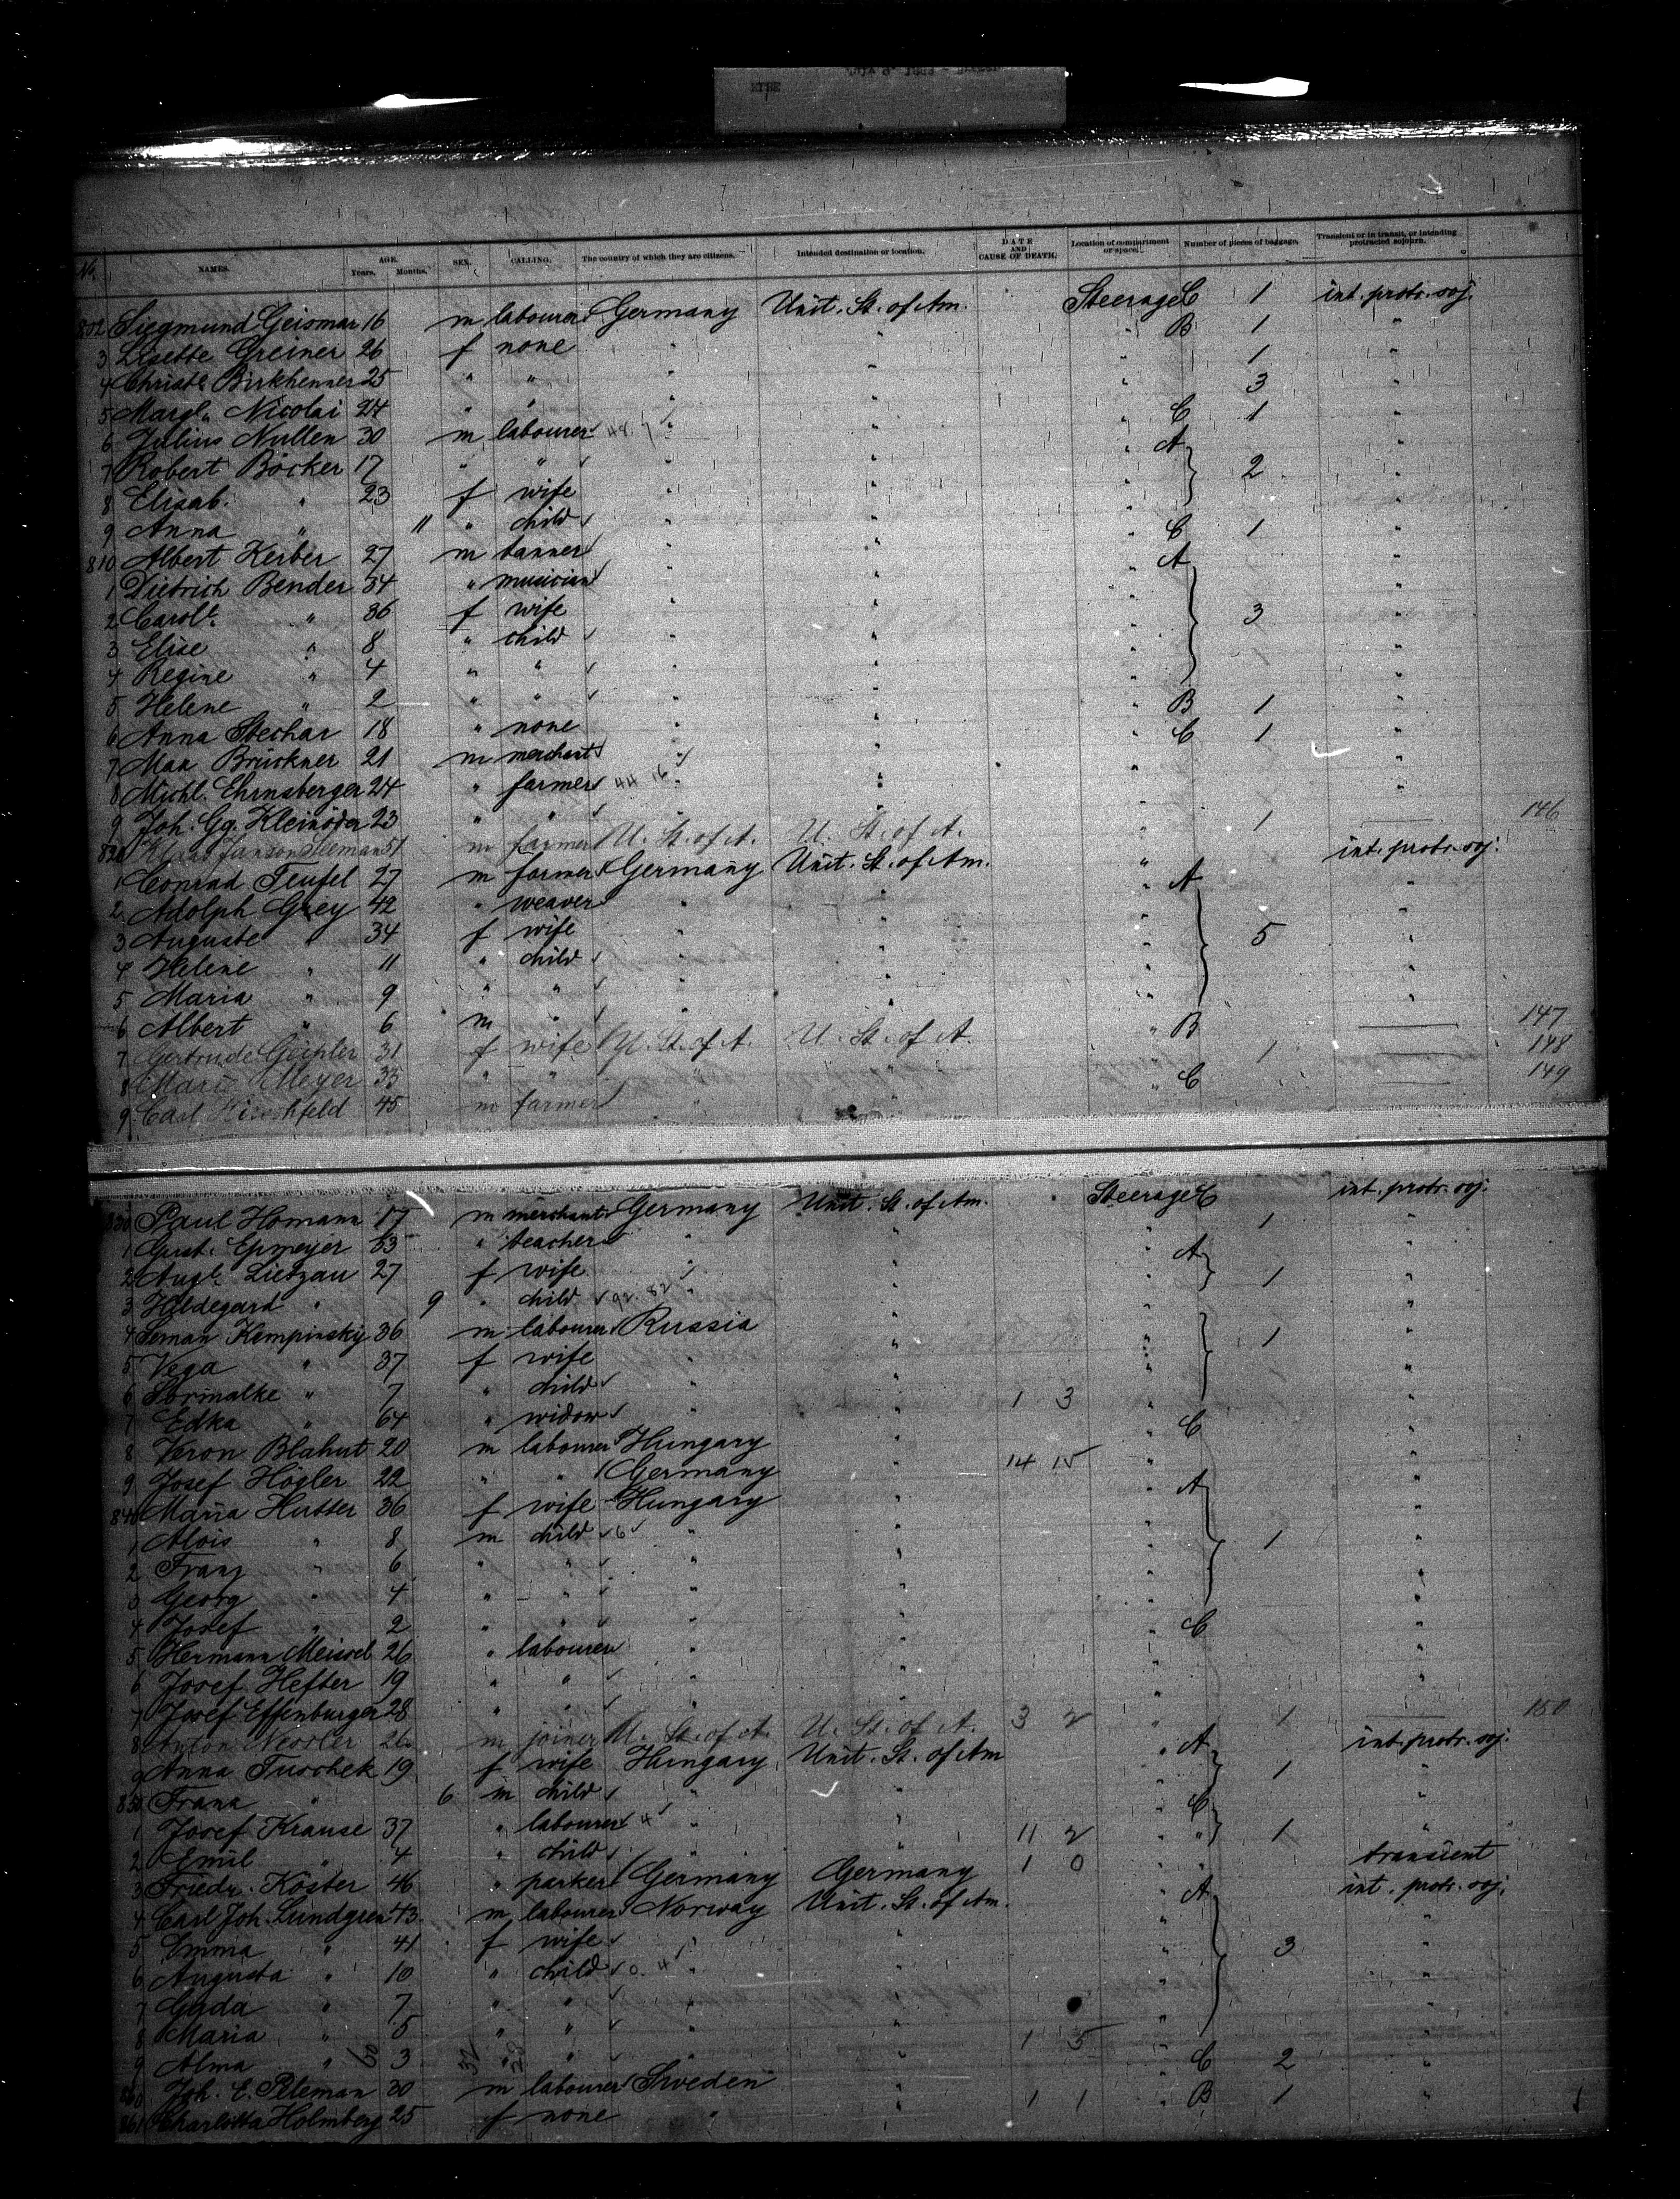 No. NAMES. AGE. Years. Months. SEX. CALLING. The country of which they are citizens. Intended destination or location. DATE AND CAUSE OF DEATH. Location of compartment or space. Number of pieces of baggage. Transient or in transit, or intending protracted sojourn.
802 Siegmund Geismar 16 m labourer Germany Unit. St. of Am. Steerage C 1 int. protr. soj.
3 Lisette Greiner 26 f none " " " B 1 "
4 Christe Birkhenner 25 " " " " " 1 "
5 Margt. Nicolai 24 " " " " " 3 "
6 Julius Nullen 30 m labourer " " " C 1 "
7 Robert Böcker 17 " " " " " A "
8 Elisab. " 23 f wife " " " 2 "
9 Anna " 11 " child " " " "
810 Albert Kerber 27 m tanner " " " C 1 "
1 Dietrich Bender 34 " musician " " " A "
2 Carolt. " 36 f wife " " " "
3 Elise " 8 " child " " " 3 "
4 Regine " 4 " " " " " "
5 Helene " 2 " " " " " "
6 Anna Stechar 18 " none " " " B 1 "
7 Max Brückner 21 m merchant " " " C 1 "
8 Michl. Ehrnsberger 24 " farmer " " " "
9 Joh. Gg. Kleinöder 23 " " " " "
820 Janson 51 m farmer U. St. of A. U. St. of A. 1 146
1 Conrad Teufel 27 m farmer Germany Unit. St. of Am. " int. protr. soj.
2 Adolph Grey 42 " weaver " " " A "
3 Auguste " 34 f wife " " " "
4 Helene " 11 " child " " " 5 "
5 Maria " 9 " " " " " "
6 Albert " 6 m " " " " "
7 Gertrude Geipler 31 f wife U. St. of A. U. St. of A. " B 147
8 Marie Meyer 33 " " " " 1 148
9 Carl Hirschfeld 45 m farmer " " " C 149
830 Paul Homann 17 m merchant Germany Unit. St. of Am. Steerage C int. protr. soj.
1 Gust. Epmeyer 53 " teacher " " " 1 "
2 Augte. Lietzau 27 f wife " " " A "
3 Hildegard " 9 " child " " " 1 "
4 Leman Kempinsky 36 m labourer Russia " " "
5 Vega " 37 f wife " " " 1 "
6 Sormalke " 7 " child " " " "
7 Edka " 64 " widow " " 1 3 " "
8 Veron Blahut 20 m labourer Hungary " " C "
9 Josef Högler 22 " " Germany " 14 15 " "
840 Maria Hutter 36 f wife Hungary " " A "
1 Alois " 8 m child " " " "
2 Franz " 6 " " " " " 1 "
3 Georg " 4 " " " " " "
4 Josef " 2 " " " " " "
5 Hermann Meissel 26 " labourer " " " C "
6 Josef Hefter 19 " " " " " "
7 Josef Effenburger 28 " " " " " "
8 Anton Nessler 26 m joiner U. St. of A. U. St. of A. 3 2 " 1 150
9 Anna Tuschek 19 f wife Hungary Unit. St. of Am " A int. protr. soj.
850 Frana " 6 m child " " 1 "
1 Josef Krause 37 " labourer " " C "
2 Emil " 4 " child " " 11 2 " " 1 "
3 Friedr. Köster 46 " parker Germany Germany 1 0 " " transient
4 Carl Joh. Lundgren 43 m labourer Norway Unit. St. of Am. A int. protr. soj.
5 Emma " 41 f wife " " " "
6 Augusta " 10 " child " " " 3 "
7 Gada " 7 " " " " " "
8 Maria " 5 " " " " " "
9 Alma " 3 " " " " 1 5 "
860 Joh. E. Peleman 30 m labourer Sweden " " C 2 "
861 Charlotta Holmberg 25 f none " " 1 1 " B 1 "